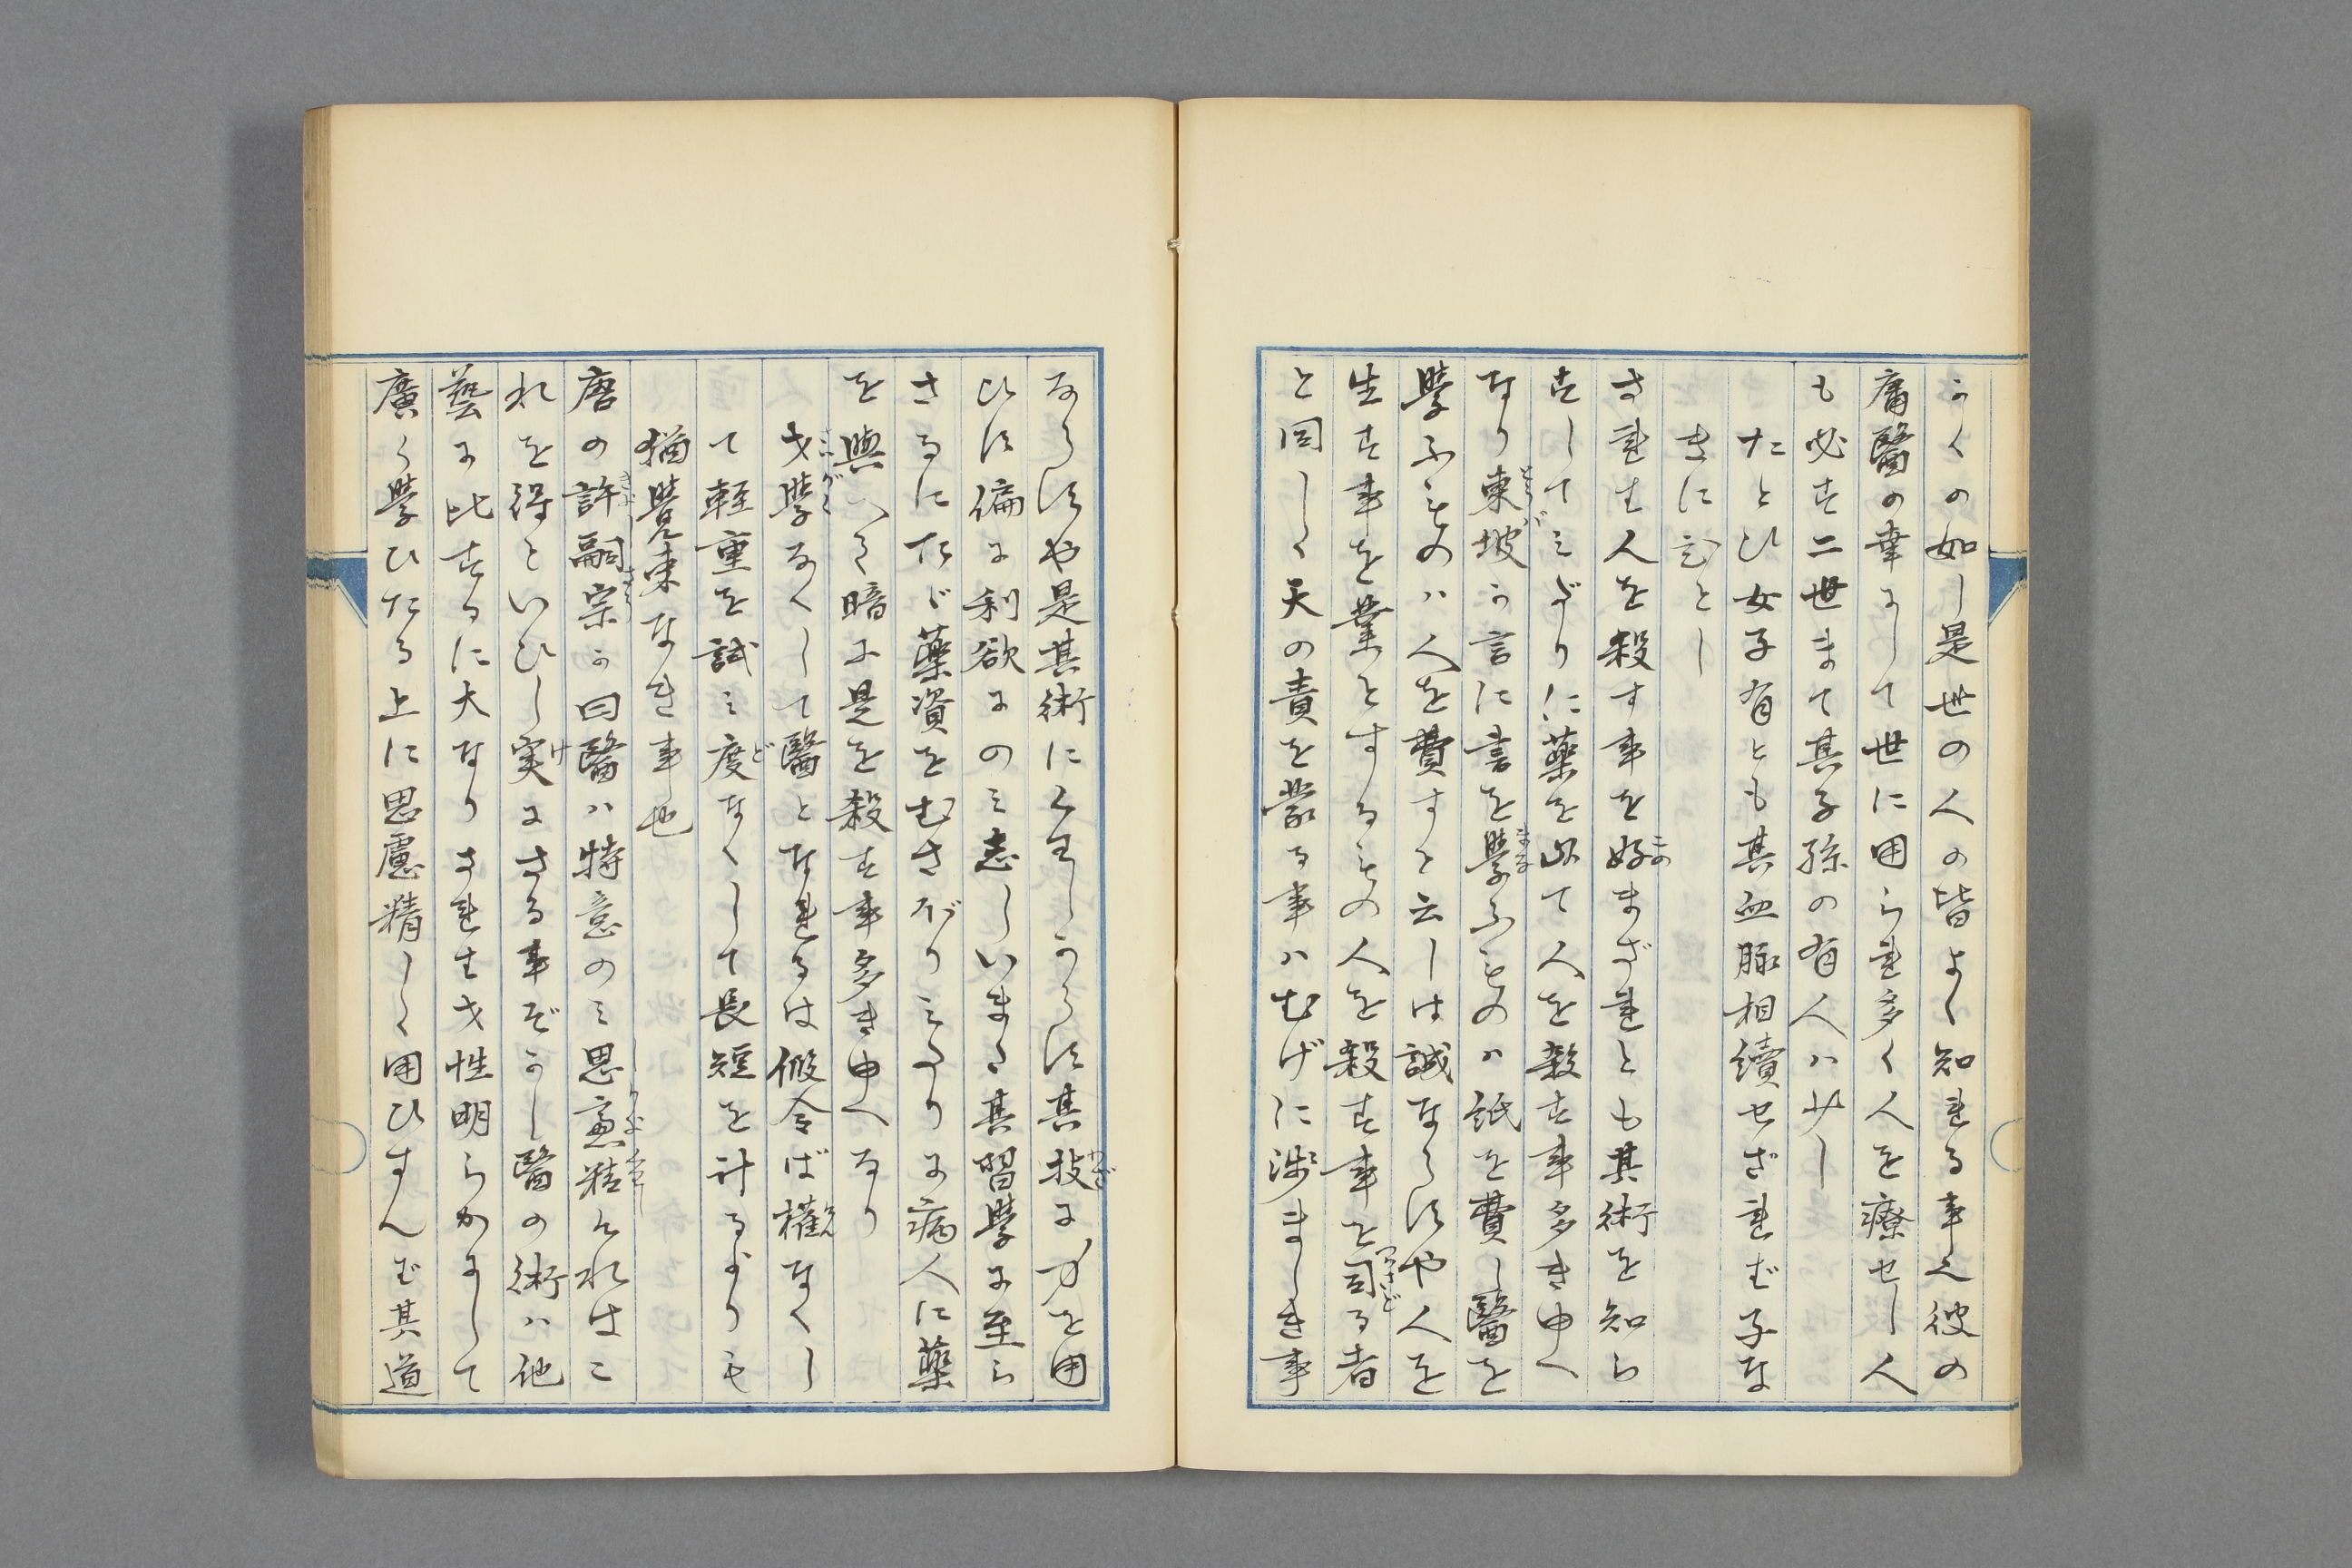 かくの如し是世の人の皆よく知れる事也彼の
庸醫の幸にして世に用られ多く人を療せし人
も必す二世まて其子孫の有人ハ少し
たとひ女子有とも其血脉相續せざれば子な
きに同し
されは人を殺す事を好まざれとも其術を知ら
すしてみだりに薬を以て人を殺す事多き由へ
なり東坡か言に書を學ふものハ紙を費し醫を
學ふものハ人を費すと云しは誠ならすや人を
生す事を業とするもの人を殺す事を司る者
と同しく天の責を蒙る事ハむげに淺ましき事
ならすや是其術にくわしからす其技に力を用
ひす偏に利欲にのみ志しいまた其習學に至ら
さるにたゞ薬資をむさぼりみたりに病人に薬
を與へて暗に是を殺す事多き由へなり
才學なくして醫となれるは假令ば權なくし
て軽重を試ミ度なくして長短を計るよりも
猶覺束なき事也
唐の許嗣宗か曰醫ハ特意のミ思慮精けれはこ
れを得といひし実にさる事ぞかし醫の術ハ他
藝に比するに大なりされは才性明らかにして
廣く學ひたる上に思慮精しく用ひすんば其道